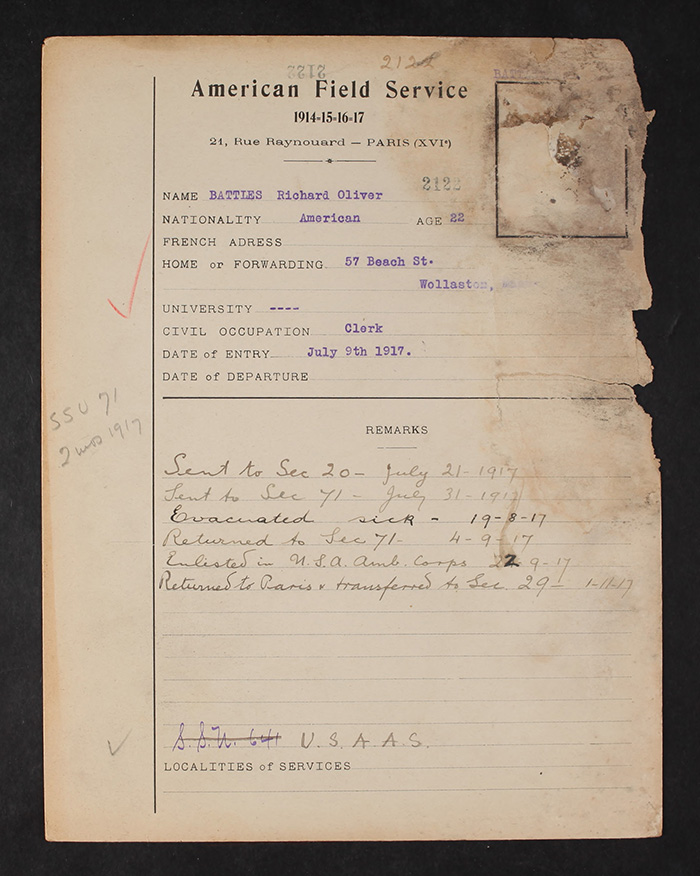 2122 2122
American Field Service
1914-15-16-17
21, Rue Raynouard — PARIS (XVIe)
2122
NAME BATTLES Richard Oliver
NATIONALITY American AGE 22
FRENCH ADRESS
HOME or FORWARDING 57 Beach St.
Wollaston,
UNIVERSITY ----
CIVIL OCCUPATION Clerk
DATE of ENTRY July 9th 1917.
DATE of DEPARTURE
SSU 71
2 mos 1917
REMARKS
Sent to Sec 20 - July 21-1917
Sent to Sec 71 - July 31-1917
Evacuated sick - 19-8-17
Returned to Sec 71- 4-9-17
Enlisted in U.S.A. Amb. Corps 22 9-17
Returned to Paris & transferred to Sec 29- 1-11-17
S.S.U. 641 U.S.A.A.S.
LOCALITIES of SERVICES